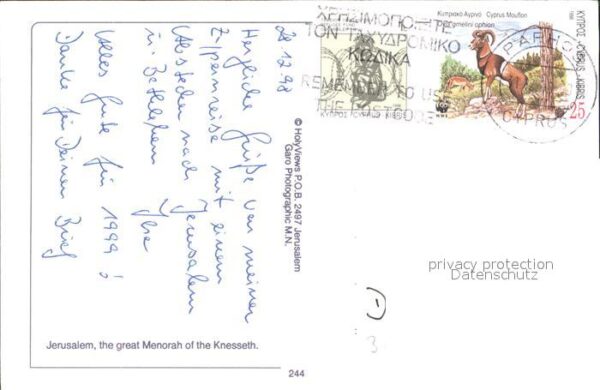 28.12.98
Herzliche Grüße von meiner
Zypernreise mit einem
Abstecher nach Jerusalem
u. Bethlehem
Alles Gute für 1999!
Danke für Deinen Brief
© HolyViews P.O.B. 2497 Jerusalem
Garo Photographic M.N.
Jerusalem, the great Menorah of the Knesseth.
244
ΧΡΗΣΙΜΟΠΟΙΕΙΤΕ
ΤΟΝ ΤΑΧΥΔΡΟΜΙΚΟ
ΚΩΔΙΚΑ
REMEMBER TO USE
THE POSTCODE
ΚΥΠΡΟΣ CYPRUS KIBRIS
Κυπριακό Αγρινό Cyprus Mouflon
ΚΥΠΡΟΣ · CYPRUS · KIBRIS
1998
WWF
25
PAFOS
CYPRUS
privacy protection
Datenschutz
3